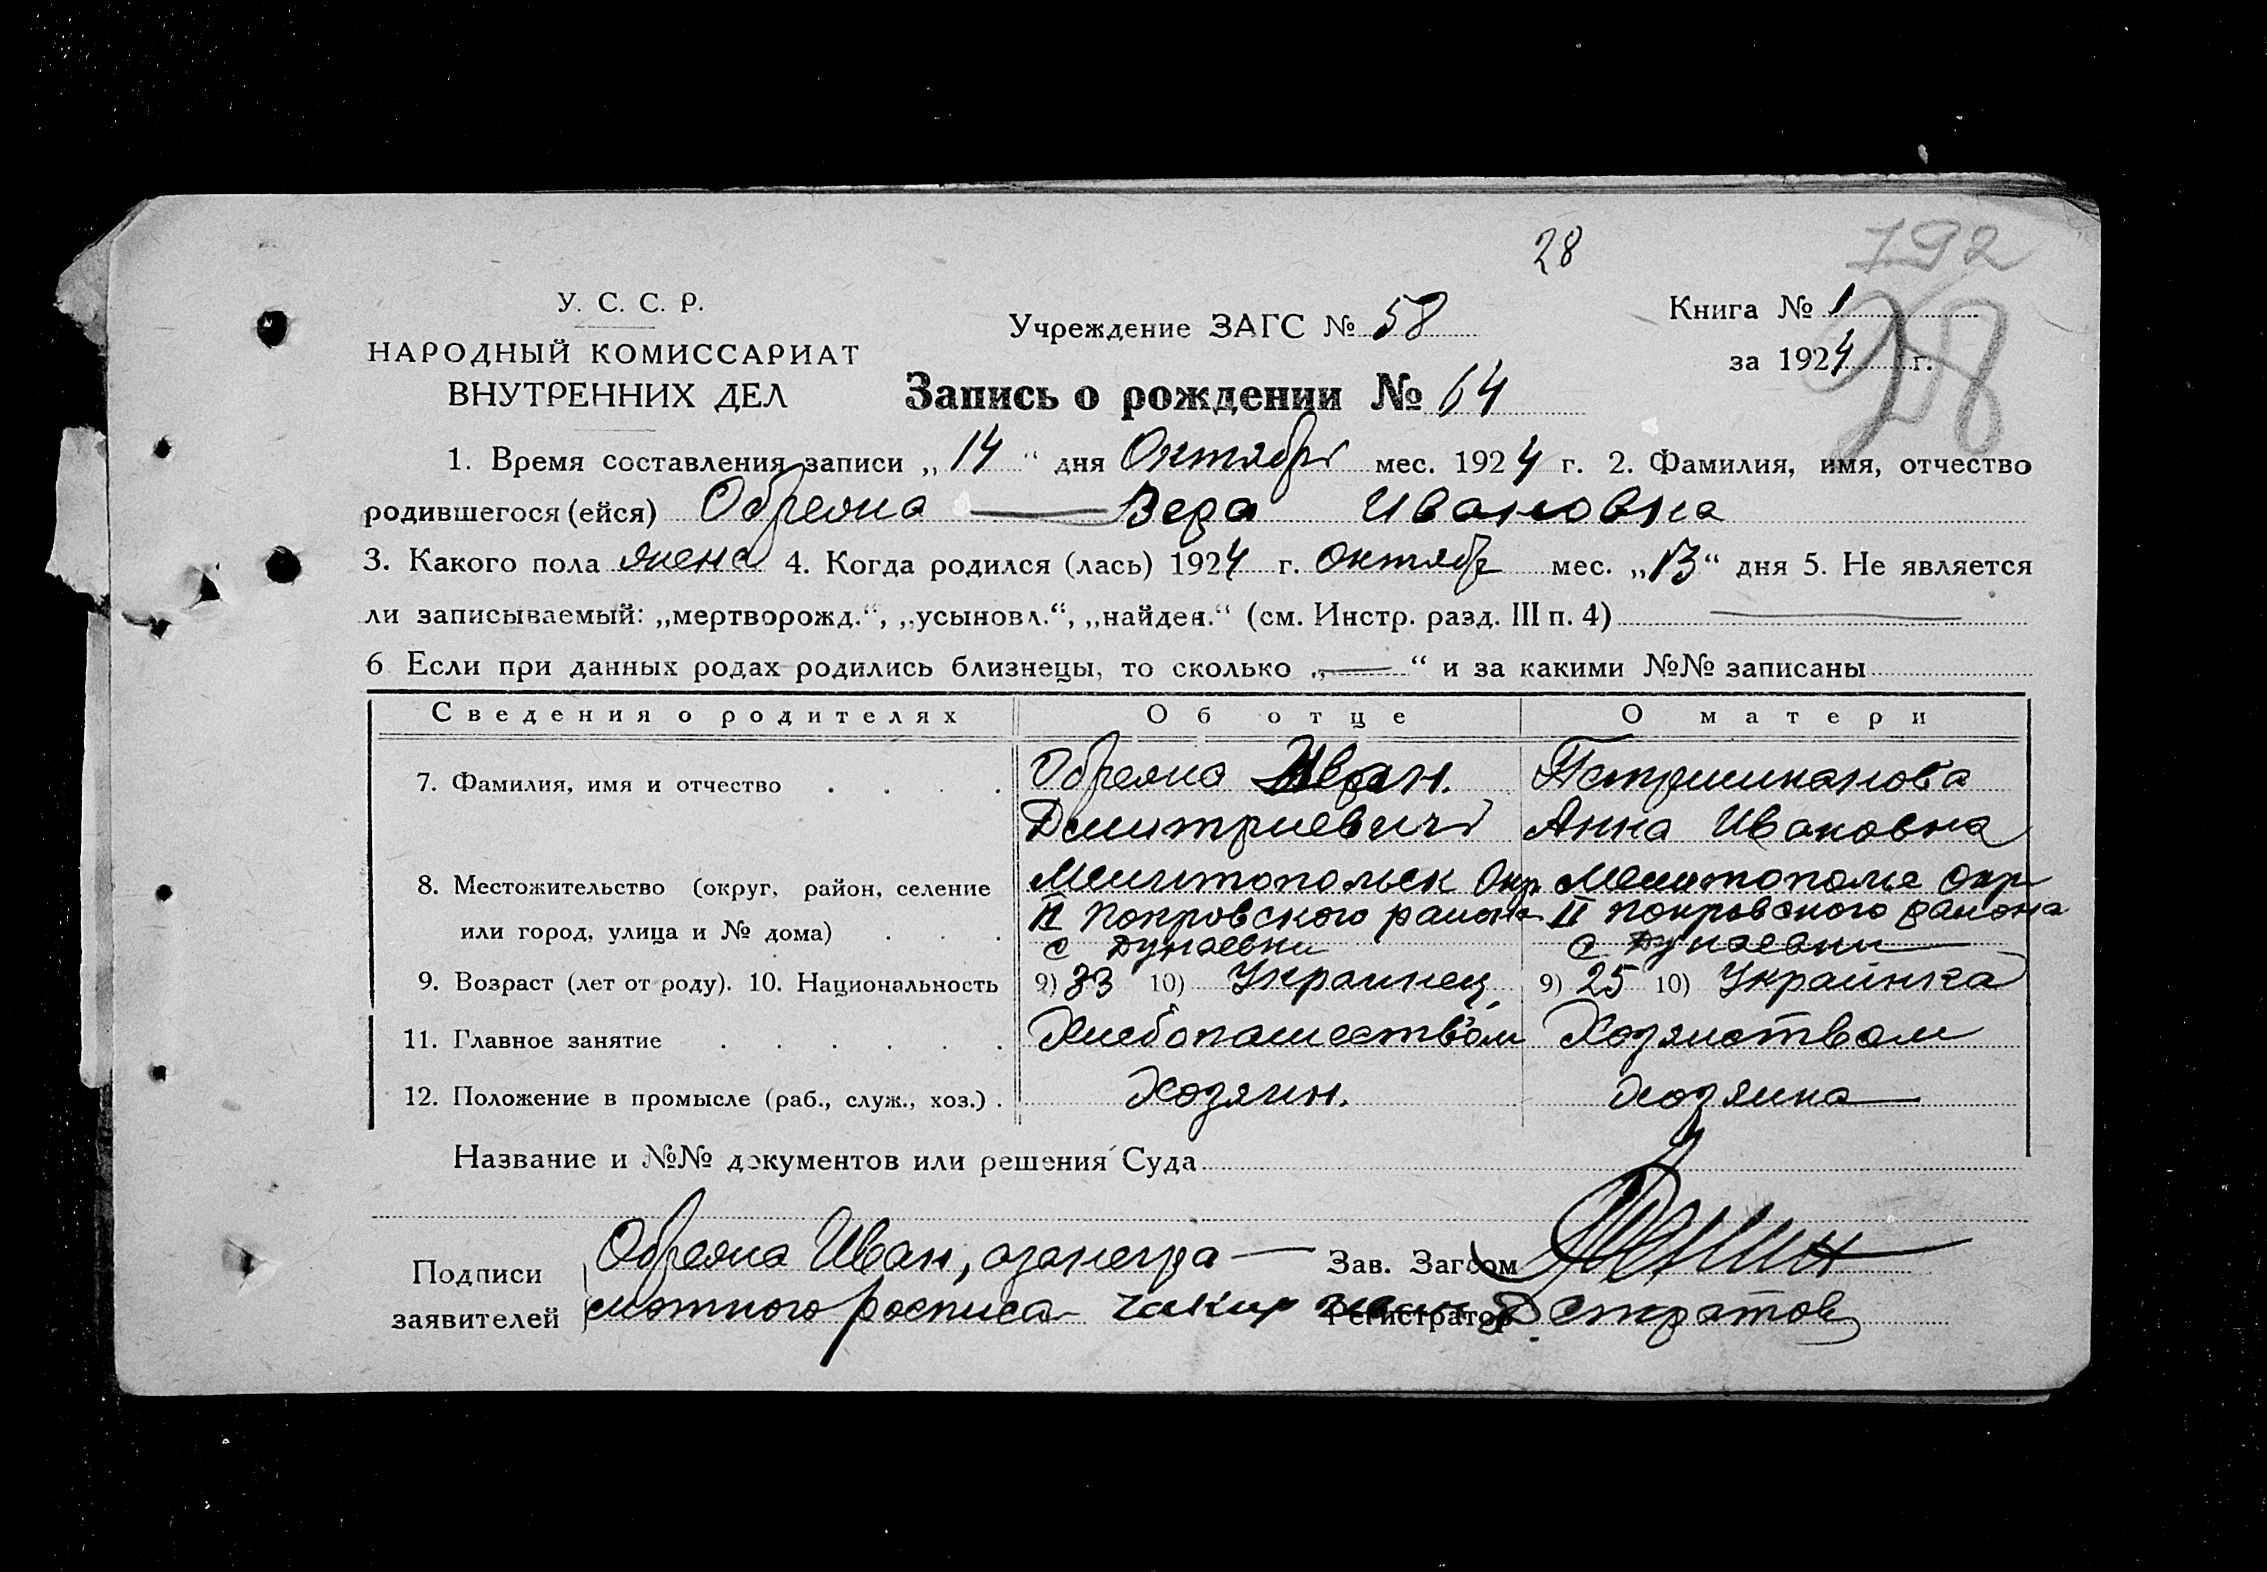 28
192
28
У. С. С. Р.
НАРОДНЫЙ КОМИССАРИАТ
ВНУТРЕННИХ ДЕЛ
Учреждение ЗАГС № 58
Книга № 1
за 1924 г.
Запись о рождении № 64
1. Время составления записи „ 14 “ дня Октября мес. 1924 г. 2. Фамилия, имя, отчество
родившегося (ейся) Обреяна — Вера Ивановна
3. Какого пола жена 4. Когда родился (лась) 1924 г. Октябр мес. „13“ дня 5. Не является
ли записываемый: „мертворожд.“, „усыновл.“, „найден.“ (см. Инстр. разд. III п. 4) —
6 Если при данных родах родились близнецы, то сколько „—“ и за какими №№ записаны
Сведения о родителях Об отце О матери
7. Фамилия, имя и отчество Обреяна Иван. Петришканова
Дмитриевич Анна Ивановна
8. Местожительство (округ, район, селение Окр Окр
или город, улица и № дома) II Покровского района II Покровского района
с Дунаевки с Дунаевки
9. Возраст (лет от роду). 10. Национальность 9) 33 10) Украинец 9) 25 10) Украинка
11. Главное занятие Хлебопашеством Хозяиством
12. Положение в промысле (раб., служ., хоз.) Хозяин. Хозяика
Название и №№ документов или решения Суда
Подписи Обреяна Иван, Зав. Загсом
заявителей росписа Регистратор